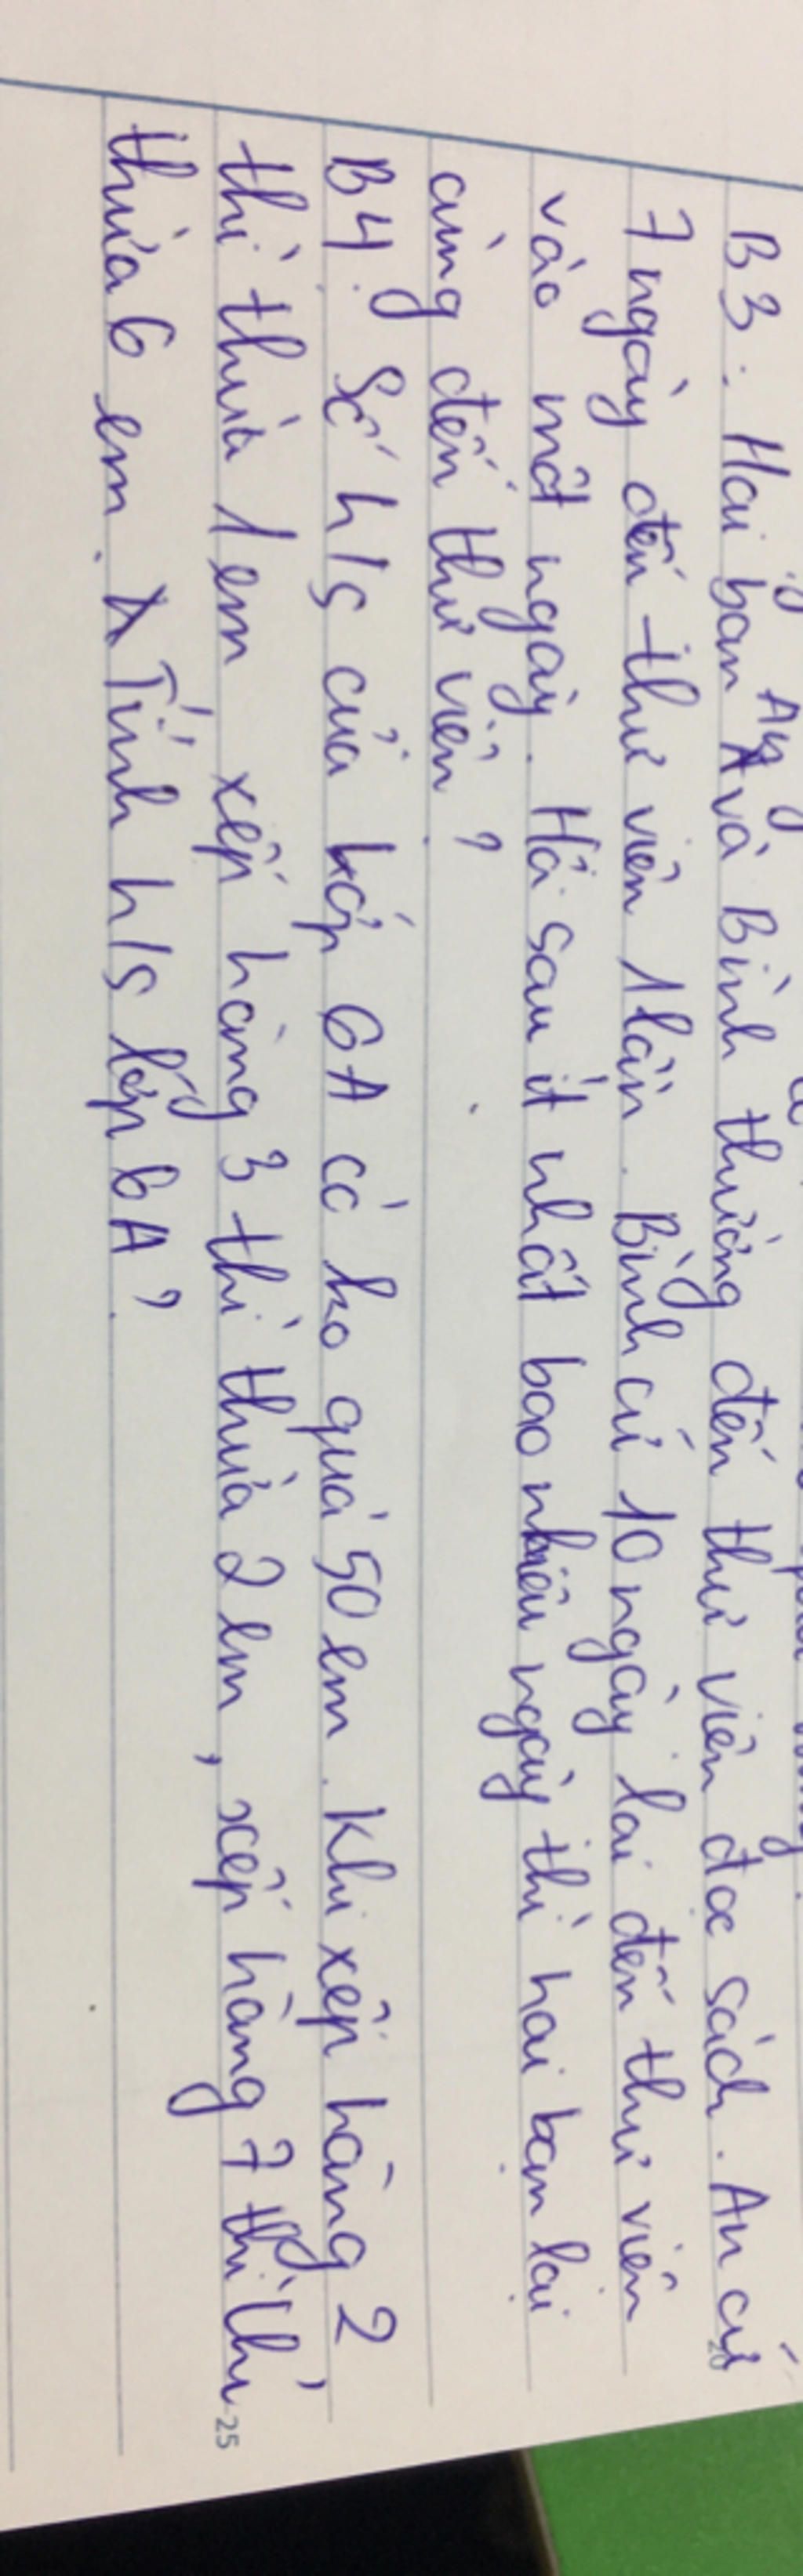 B3: Hai bạn An và Bình thường đến thư viện đọc sách. An cứ
7 ngày đến thư viện 1 lần. Bình cứ 10 ngày lại đến thư viện
vào một ngày. Hỏi sau ít nhất bao nhiêu ngày thì hai bạn lại
cùng đến thư viện?
B4. Số h/s của lớp 6A có ko quá 50 em. Khi xếp hàng 2
thì thừa 1 em xếp hàng 3 thì thừa 2 em, xếp hàng 7 thì
thừa 6 em. Tính h/s lớp 6A?
20
25